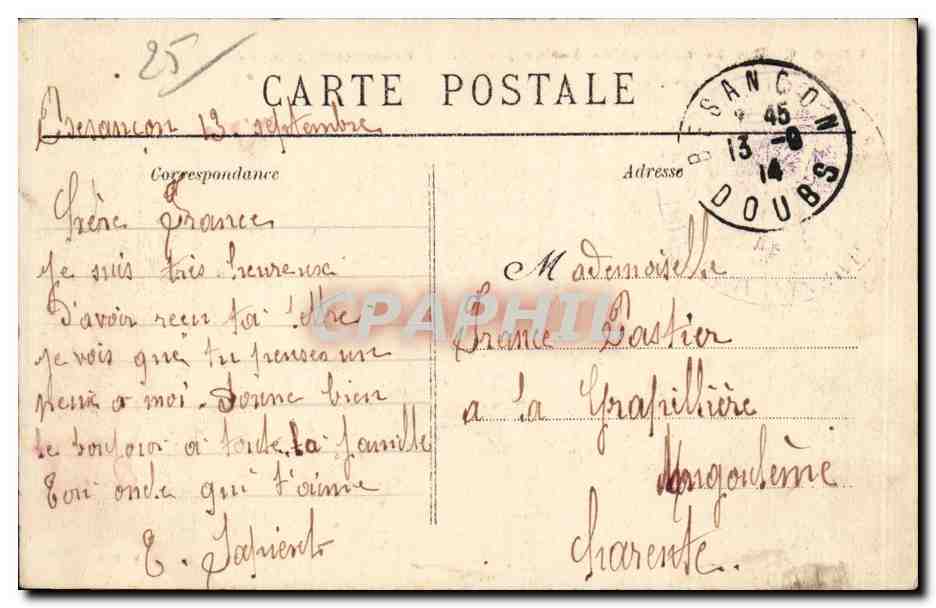 25/
CARTE POSTALE
Besançon 13 septembre
Correspondance
Adresse
BESANCON
45
13 -9
14
DOUBS
Chère France
je suis très heureux
d'avoir reçu ta lettre
je vois que tu penses un
peux a moi. Donne bien
le bonjour a toute la famille
Ton oncle qui t'aime
E.
Mademoiselle
France Pastier
a la Grapillière
Angoulème
Charente.
CPAPHIL